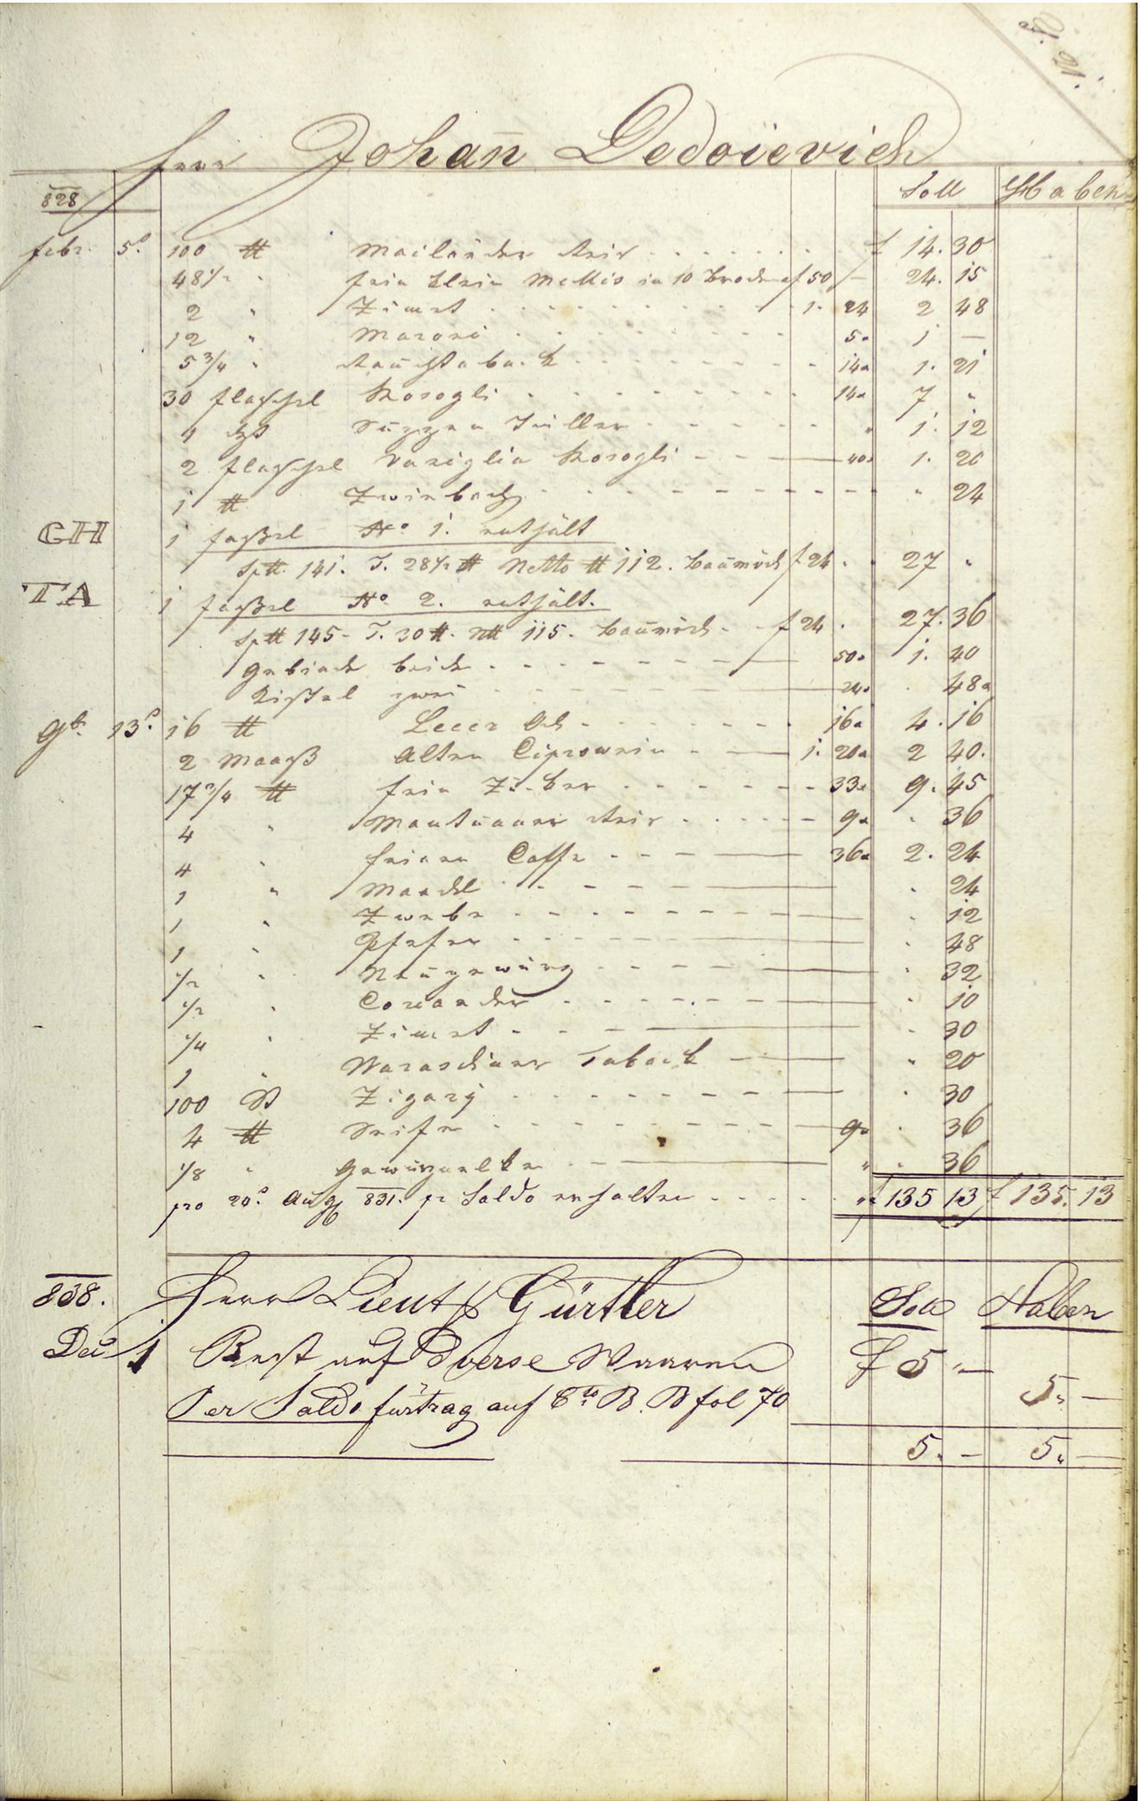 Herr Johan̄ Dedoievich
828 Soll Haben
Febr. 5. 100 ℔ Mailänder Reis f 14. 30
48½ " fein Klein Mellis in 10 Brode f 50 — 24. 15
2 " Zimet 1. 24 2 48
12 " Maroni 5 1 —
5¾ " Rauchtaback 14 1. 21
30 Flaschel Rosogli 14 7 "
4 Suppen Triller " 1. 12
2 Flaschel Vaniglia Rosogli 40 1. 20
1 ℔ Zwieback " 24
GH 1 Faßel No 1. enthält
Sp ℔ 141. T. 28½ ℔ Netto ℔ 112. Baumöhl f 24 . 27 "
TA 1 Faßel No 2. enthält.
Sp ℔ 145 - T. 30 ℔. N ℔ 115. Baumöhl f 24 . 27. 36
Gebinde beide 50 1. 40
Kistel zwei 24 . 48
13. 16 ℔ Leccer Öhl 16 4. 16
2 Maaß Alten Ciprowein 1. 20 2 40.
17¾ ℔ fein Zucker 33 9. 45
4 " Mantuaner Reis 9 " 36
4 " feinen Caffe 36 2. 24
1 " Mandel . 24
1 " Zwebe . 12
1 " Pfefer . 48
½ " Neugewürz . 32
½ " Coriander . 10
¼ " Zimet . 30
1 " Warasdiner Taback " 20
100 St Zigary . 30
4 ℔ Seife 9 . 36
⅛ " Gewürznelken " . 36
pro 20. Aug 831. pr Saldo erhalten f 135 13 f 135. 13
838. Herr Lieut Gürtler Soll Haben
Dec 1 Rest auf Diverse Waaren f 5 " —
Per Saldo fürtrag auf B fol 70 5 " —
5. — 5 " —